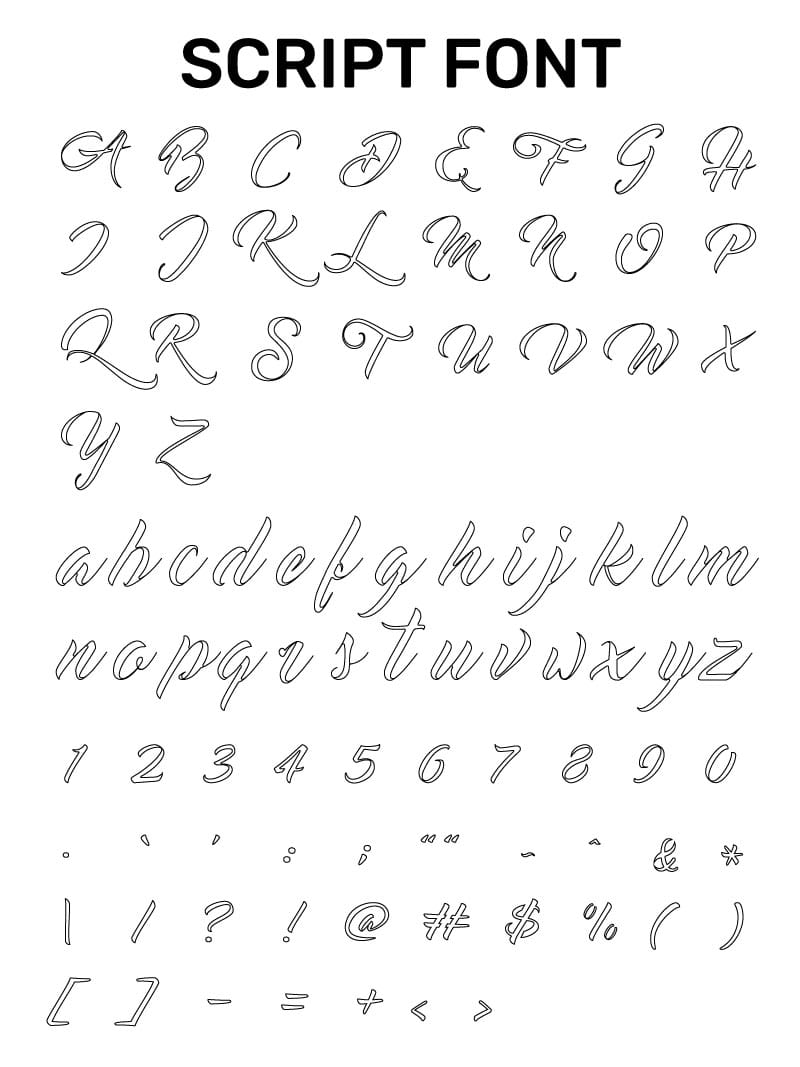 SCRIPT FONT
A B C D E F G H
I J K L M N O P
Q R S T U V W X
Y Z
a b c d e f g h i j k l m
n o p q r s t u v w x y z
1 2 3 4 5 6 7 8 9 0
. ` ' : ; "" "" ~ ^ & *
| / ? ! @ # $ % ( )
[ ] - = + < >